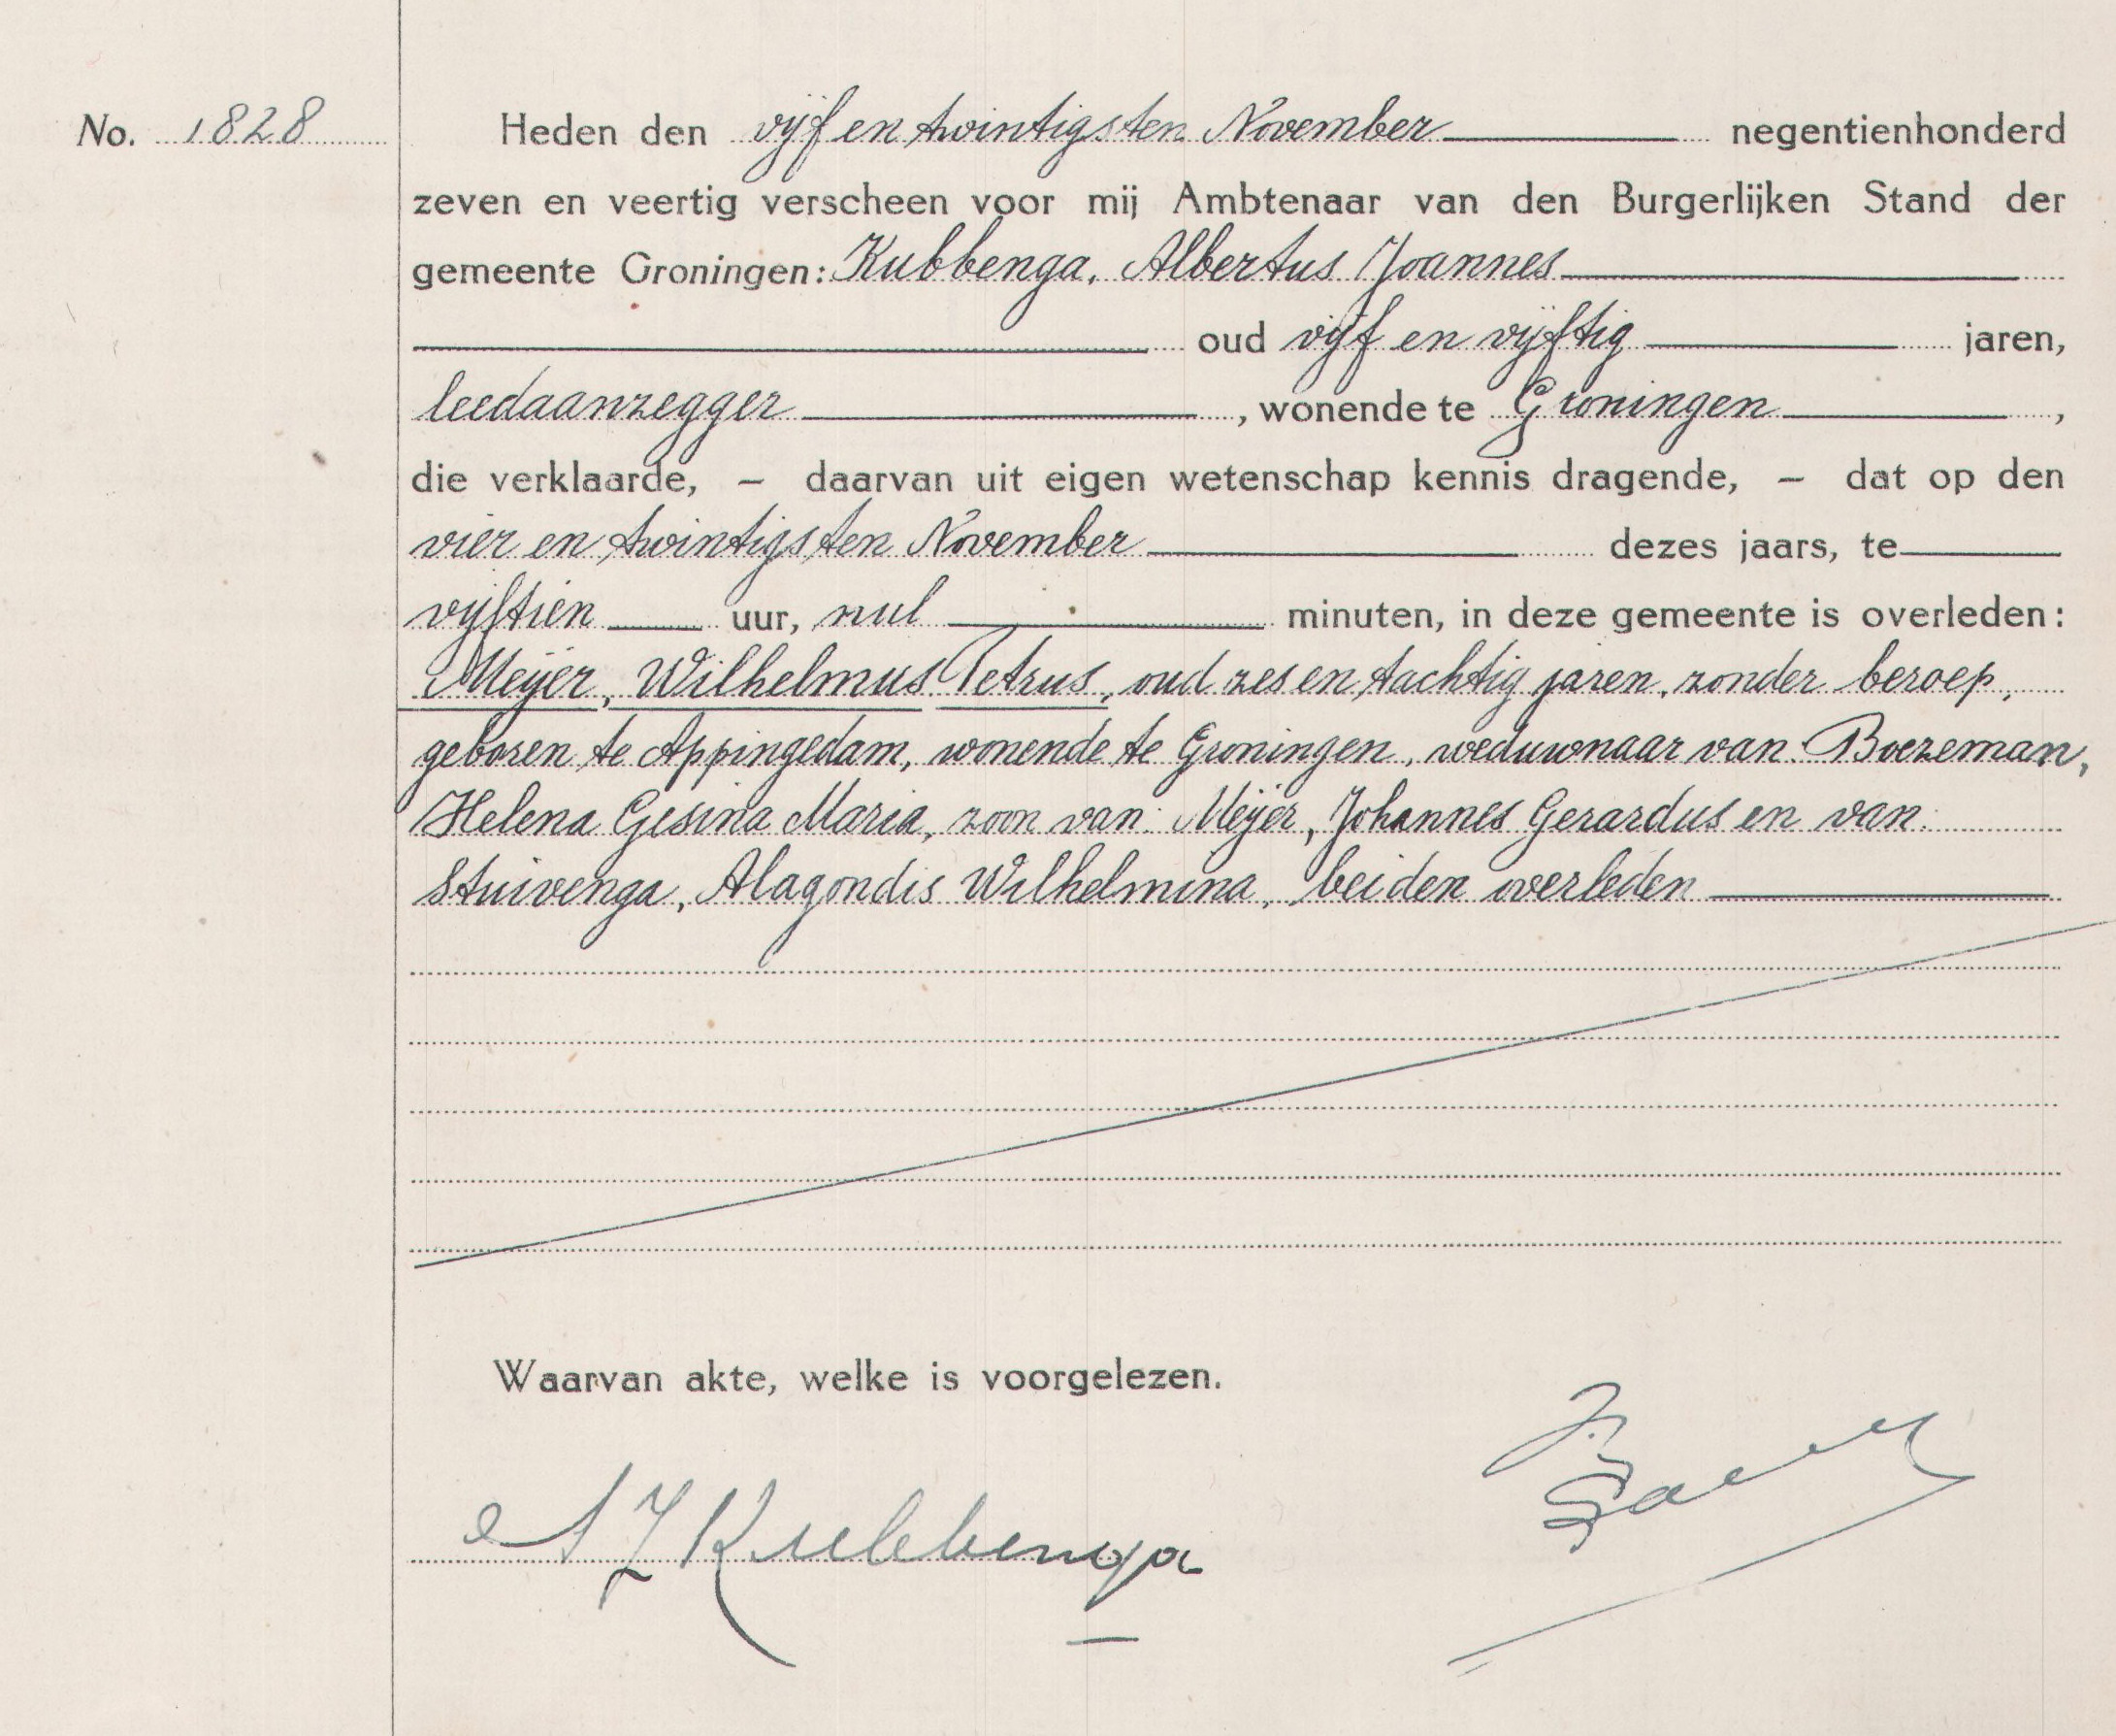 No. 1828
Heden den vijf en twintigsten November negentienhonderd
zeven en veertig verscheen voor mij Ambtenaar van den Burgerlijken Stand der
gemeente Groningen: Kubbenga, Albertus Joannes
oud vijf en vijftig jaren,
leedaanzegger, wonende te Groningen,
die verklaarde, – daarvan uit eigen wetenschap kennis dragende, – dat op den
vier en twintigsten November dezes jaars, te
vijftien uur, nul minuten, in deze gemeente is overleden:
Meijer, Wilhelmus Petrus, oud zes en tachtig jaren, zonder beroep,
geboren te Appingedam, wonende te Groningen, weduwnaar van: Boezeman,
Helena Gesina Maria, zoon van: Meijer, Johannes Gerardus en van:
Stuivenga, Alagondis Wilhelmina, beiden overleden
Waarvan akte, welke is voorgelezen.
A J Kubbenga